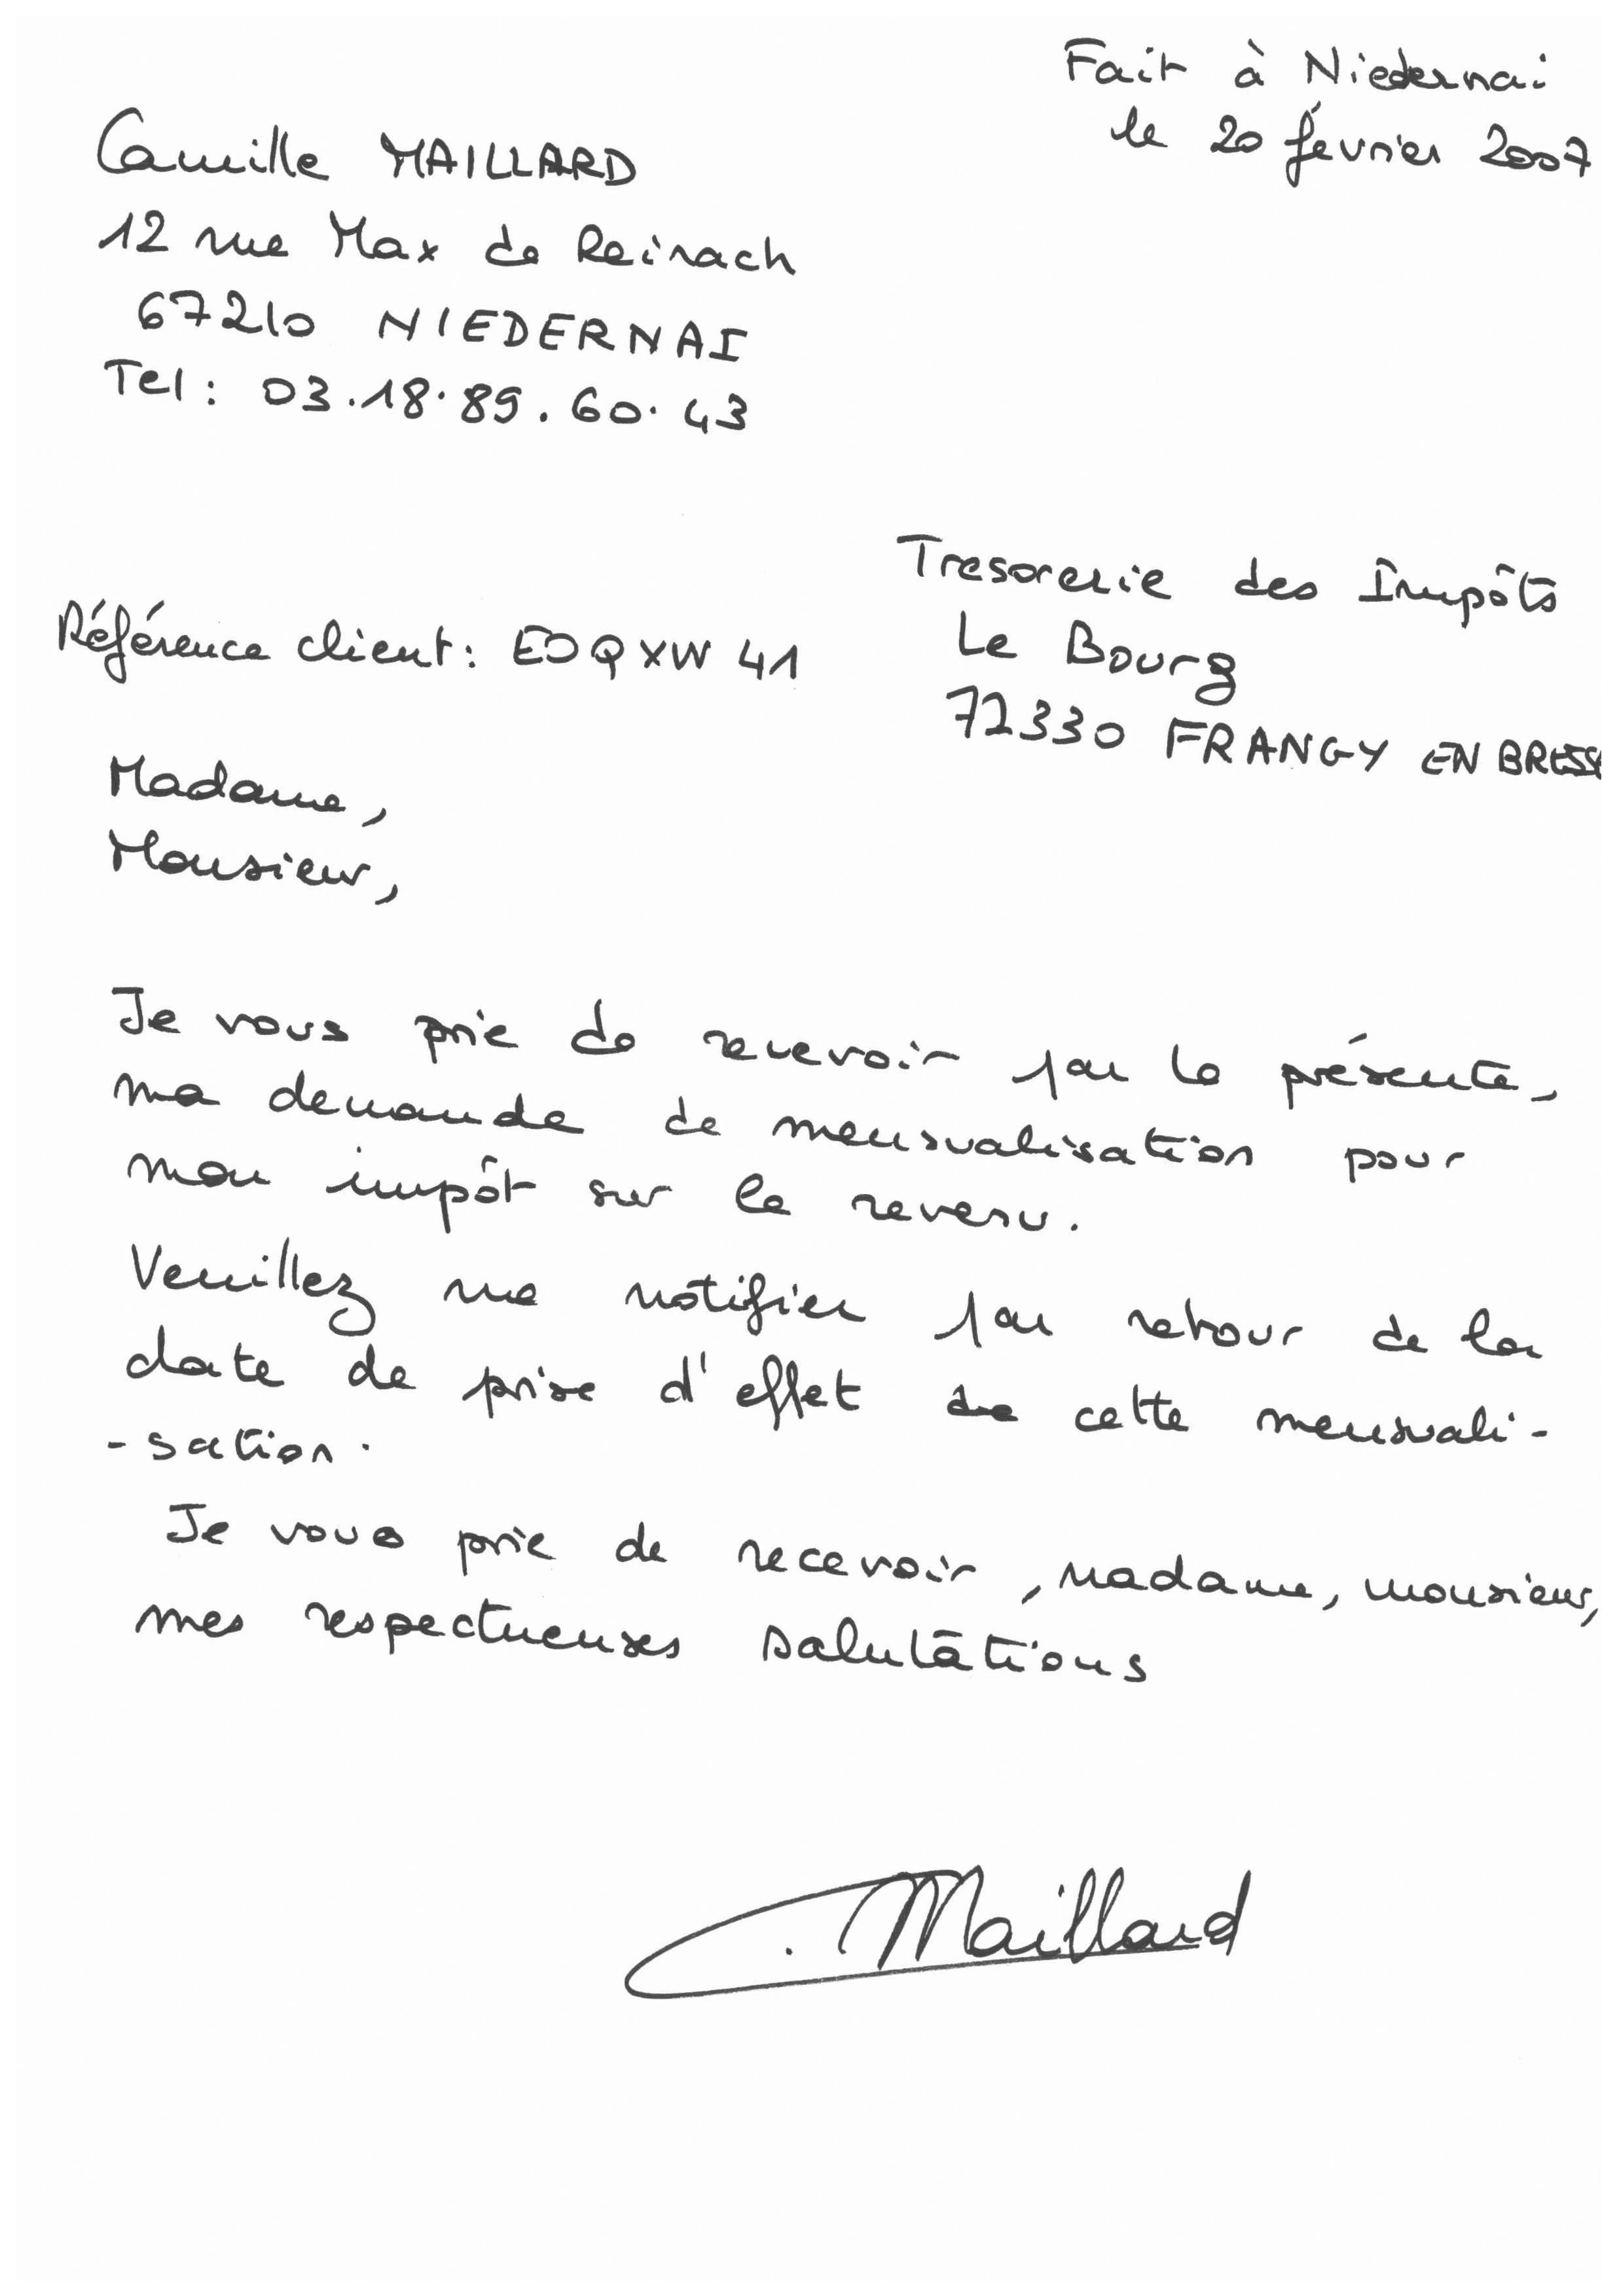 Fait à Niedernai
le 20 février 2007
Camille MAILLARD
12 rue Max de Reinach
67210 NIEDERNAI
Tel : 03.18.89.60.43
Tresorerie des Impôts
Le Bourg
72330 FRANGY EN BRESSE
Référence client : EOQXW 41
Madame,
Monsieur,
Je vous prie de recevoir par la présente,
ma demande de mensualisation pour
mon impôt sur le revenu.
Veuillez me notifier par retour de la
date de prise d'effet de cette mensuali-
-sation.
Je vous prie de recevoir, madame, monsieur,
mes respectueuses salutations
C. Maillard